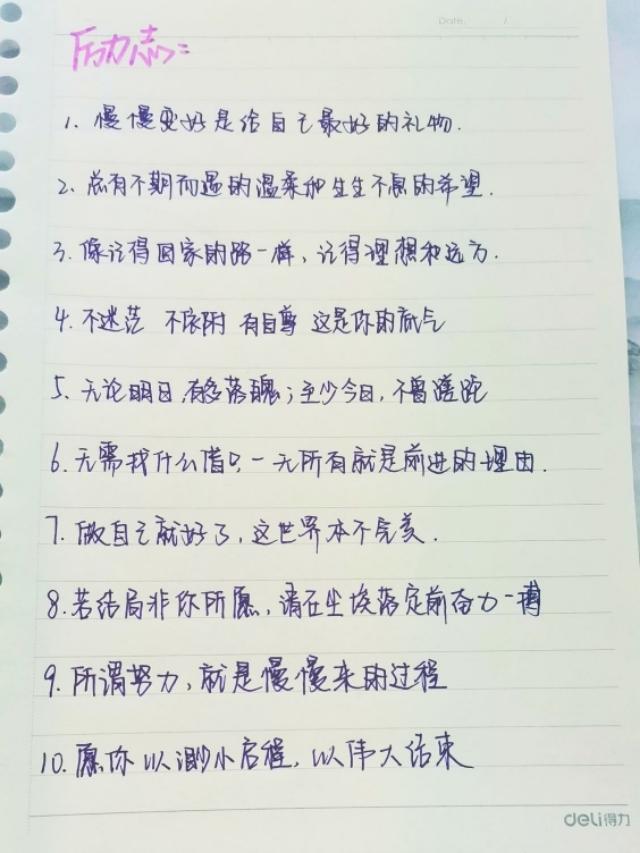 Date. /
励志:
1. 慢慢变好是给自己最好的礼物.
2. 总有不期而遇的温柔和生生不息的希望.
3. 像记得回家的路一样,记得理想和远方.
4. 不迷茫 不依附 有自尊 这是你的底气
5. 无论明日,有多落魄;至少今日,不曾蹉跎
6. 无需找什么借口,一无所有就是前进的理由.
7. 做自己就好了,这世界本不完美.
8. 若结局非你所愿,请在尘埃落定前奋力一搏
9. 所谓努力,就是慢慢来的过程
10. 愿你以渺小启程,以伟大结束
deli得力